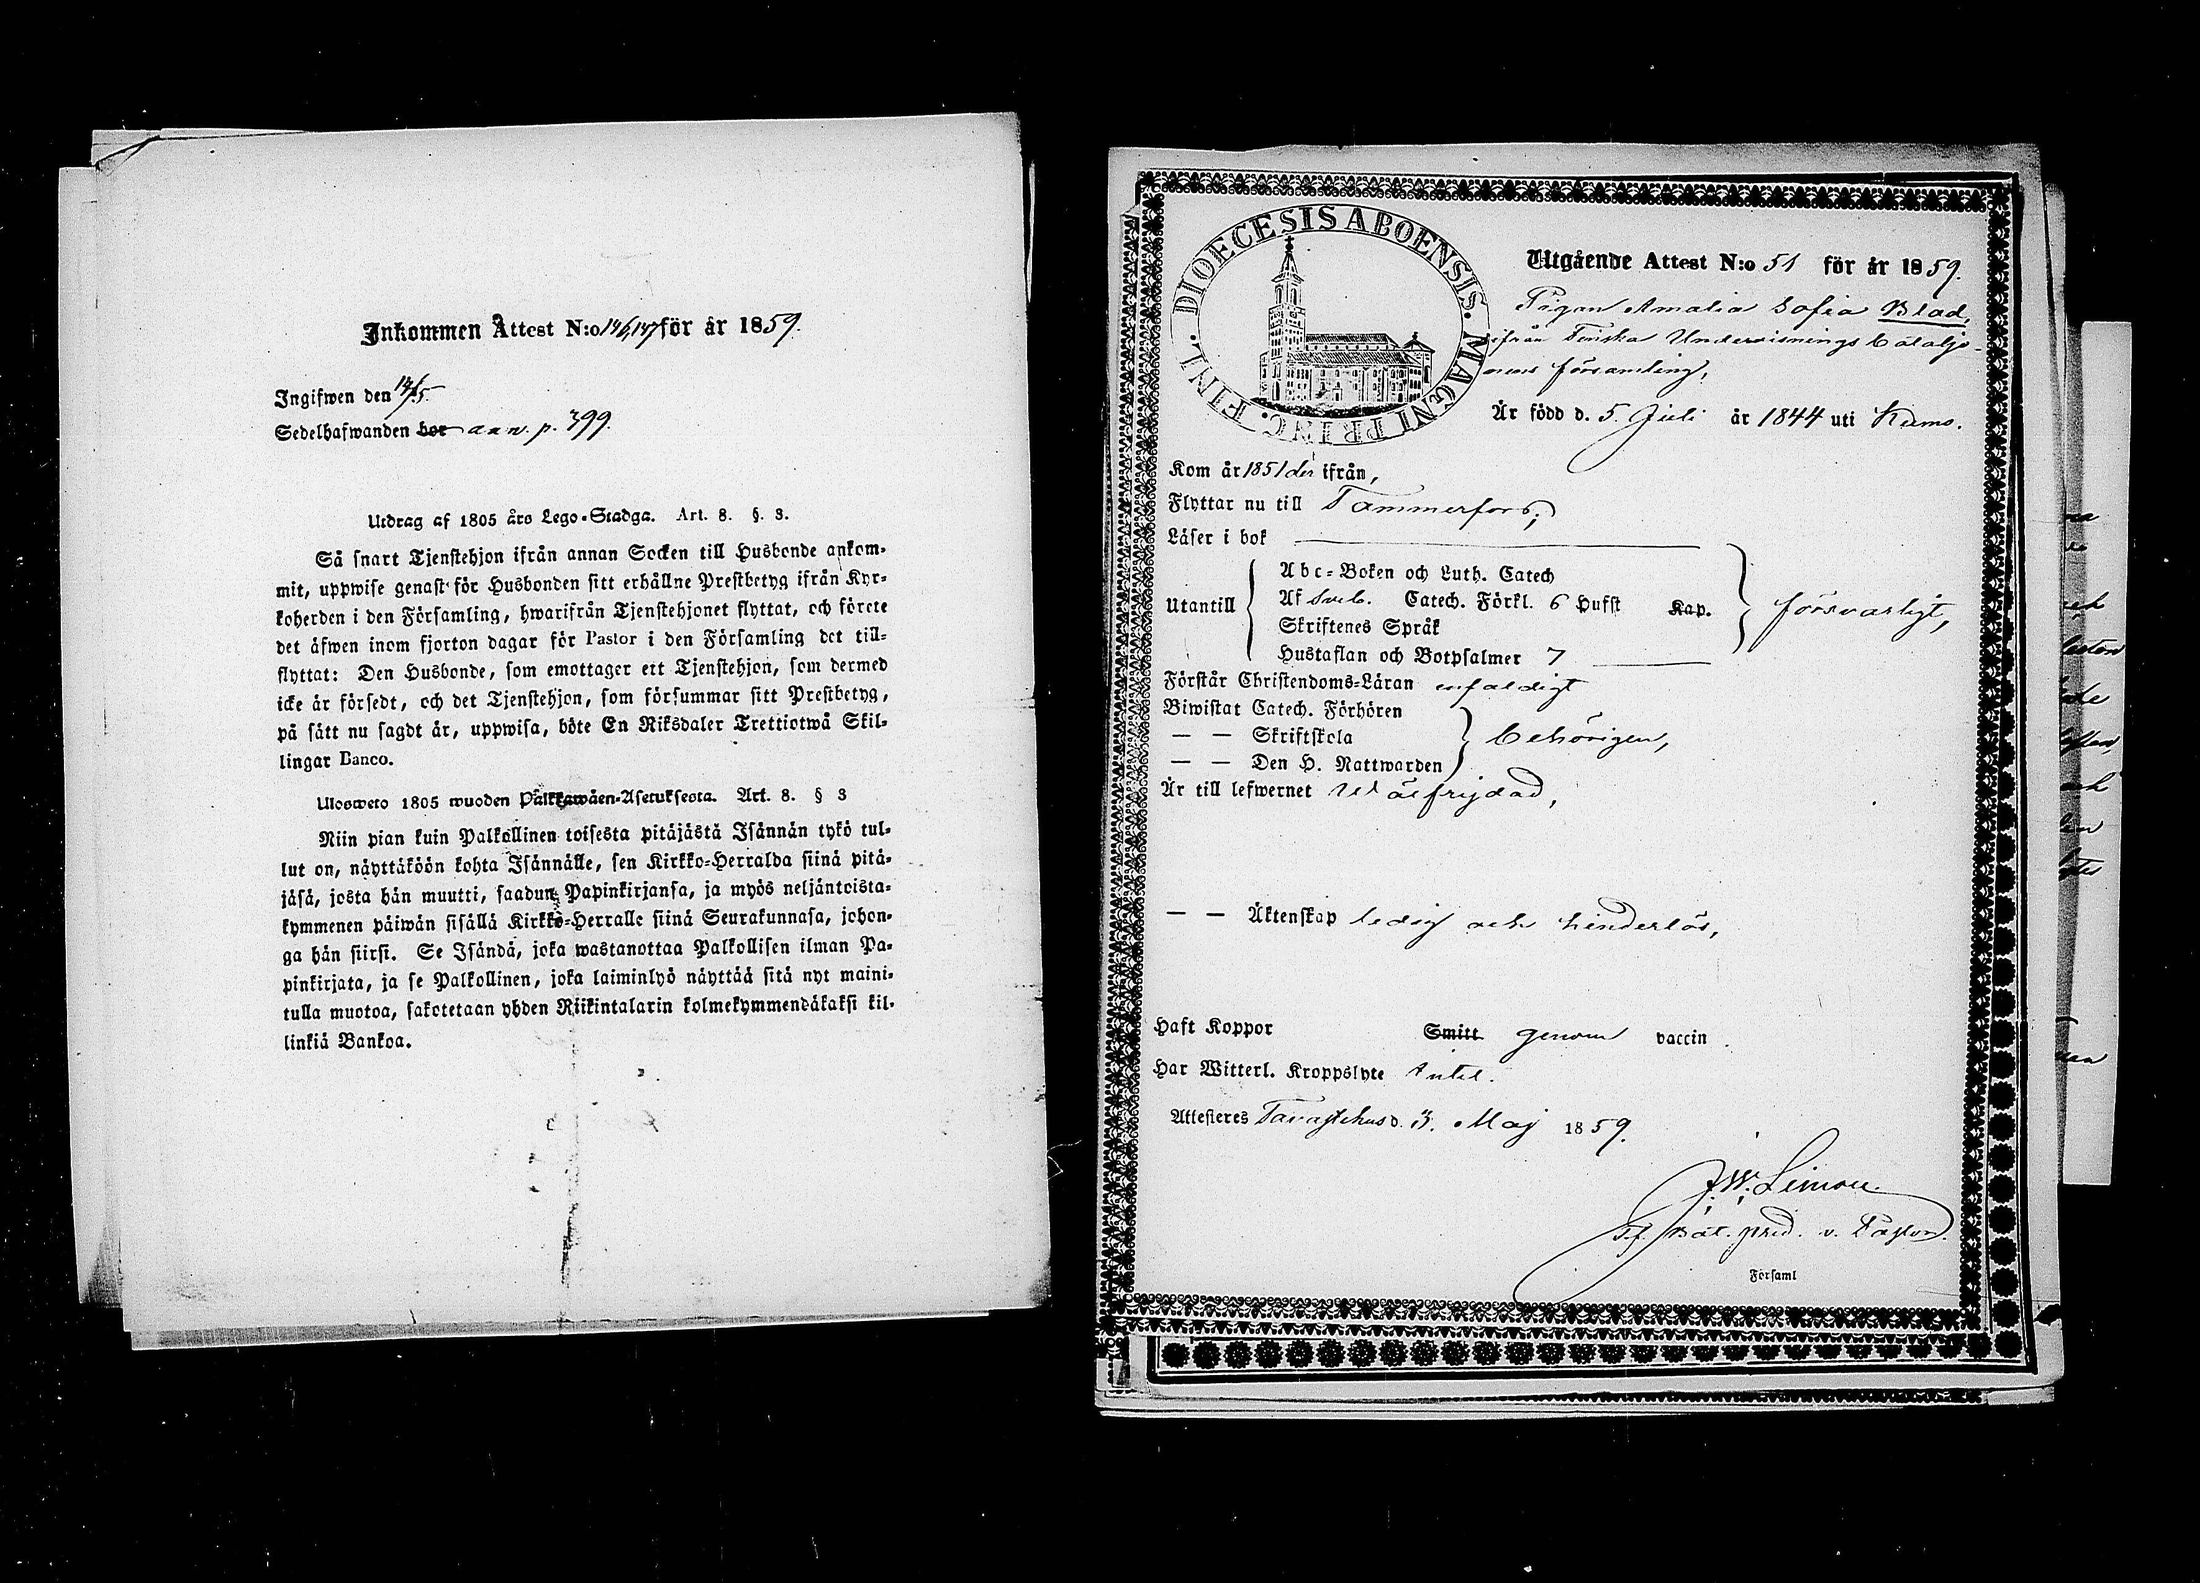 Inkommen Attest N:o 136,137 för år 1859.
Ingifwen den 14/5.
Sedelhafwanden bor ann. p. 399.
Utdrag af 1805 års Lego-Stadga. Art. 8. §. 3.
Så snart Tjenstehjon ifrån annan Socken till Husbonde ankom-
mit, uppwise genast för Husbonden sitt erhållne Prestbetyg ifrån Kyr-
koherden i den Församling, hwarifrån Tjenstehjonet flyttat, och förete
det äfwen inom fjorton dagar för Pastor i den Församling det till-
flyttat: Den Husbonde, som emottager ett Tjenstehjon, som dermed
icke är försedt, och det Tjenstehjon, som försummar sitt Prestbetyg,
på sätt nu sagdt är, uppwisa, böte En Riksdaler Trettiotwå Skil-
lingar Banco.
Ulosweto 1805 wuoden Palkkawäen-Asetuksesta. Art. 8. § 3
Niin pian kuin Palkollinen toisesta pitäjästä Isännän tykö tul-
lut on, näyttäköön kohta Isännälle, sen Kirkko-Herralda siinä pitä-
jäsä, josta hän muutti, saadun Papinkirjansa, ja myös neljäntoista-
kymmenen päiwän sisällä Kirkko-Herralle siinä Seurakunnasa, johon-
ga hän siirsi. Se Isändä, joka wastanottaa Palkollisen ilman Pa-
pinkirjata, ja se Palkollinen, joka laiminlyö näyttää sitä nyt maini-
tulla muotoa, sakotetaan yhden Riikintalarin kolmekymmendäkaksi kil-
linkiä Bankoa.
DIOECESIS ABOENSIS. MAGNI PRINC. FINL.
Utgående Attest N:o 51 för år 1859.
Pigan Amalia Sofia Blad,
ifrån Finska Undervisnings Bataljo-
nens församling,
Är född d. 5. Juli år 1844 uti Kumo.
Kom år 1851 der ifrån,
Flyttar nu till Tammerfors;
Läser i bok
Utantill
Abc-Boken och Luth. Catech
Af Sveb. Catech. Förkl. 6 Hufst Kap.
Skriftenes Språk
Hustaflan och Botpsalmer 7
försvarligt,
Förstår Christendoms-Läran enfaldigt
Biwistat Catech. Förhören
— — Skriftskola
— — Den H. Nattwarden
behörigen,
Är till lefwernet Wälfrejdad,
— — Äktenskap ledig och hinderlös,
Haft Koppor Smitt genom vaccin.
Har Witterl. Kroppslyte Intet.
Attesteres Tavastehus d. 3. Maj 1859.
J. W. Limon
T.f. Bat. pred. v. Pastor.
Församl